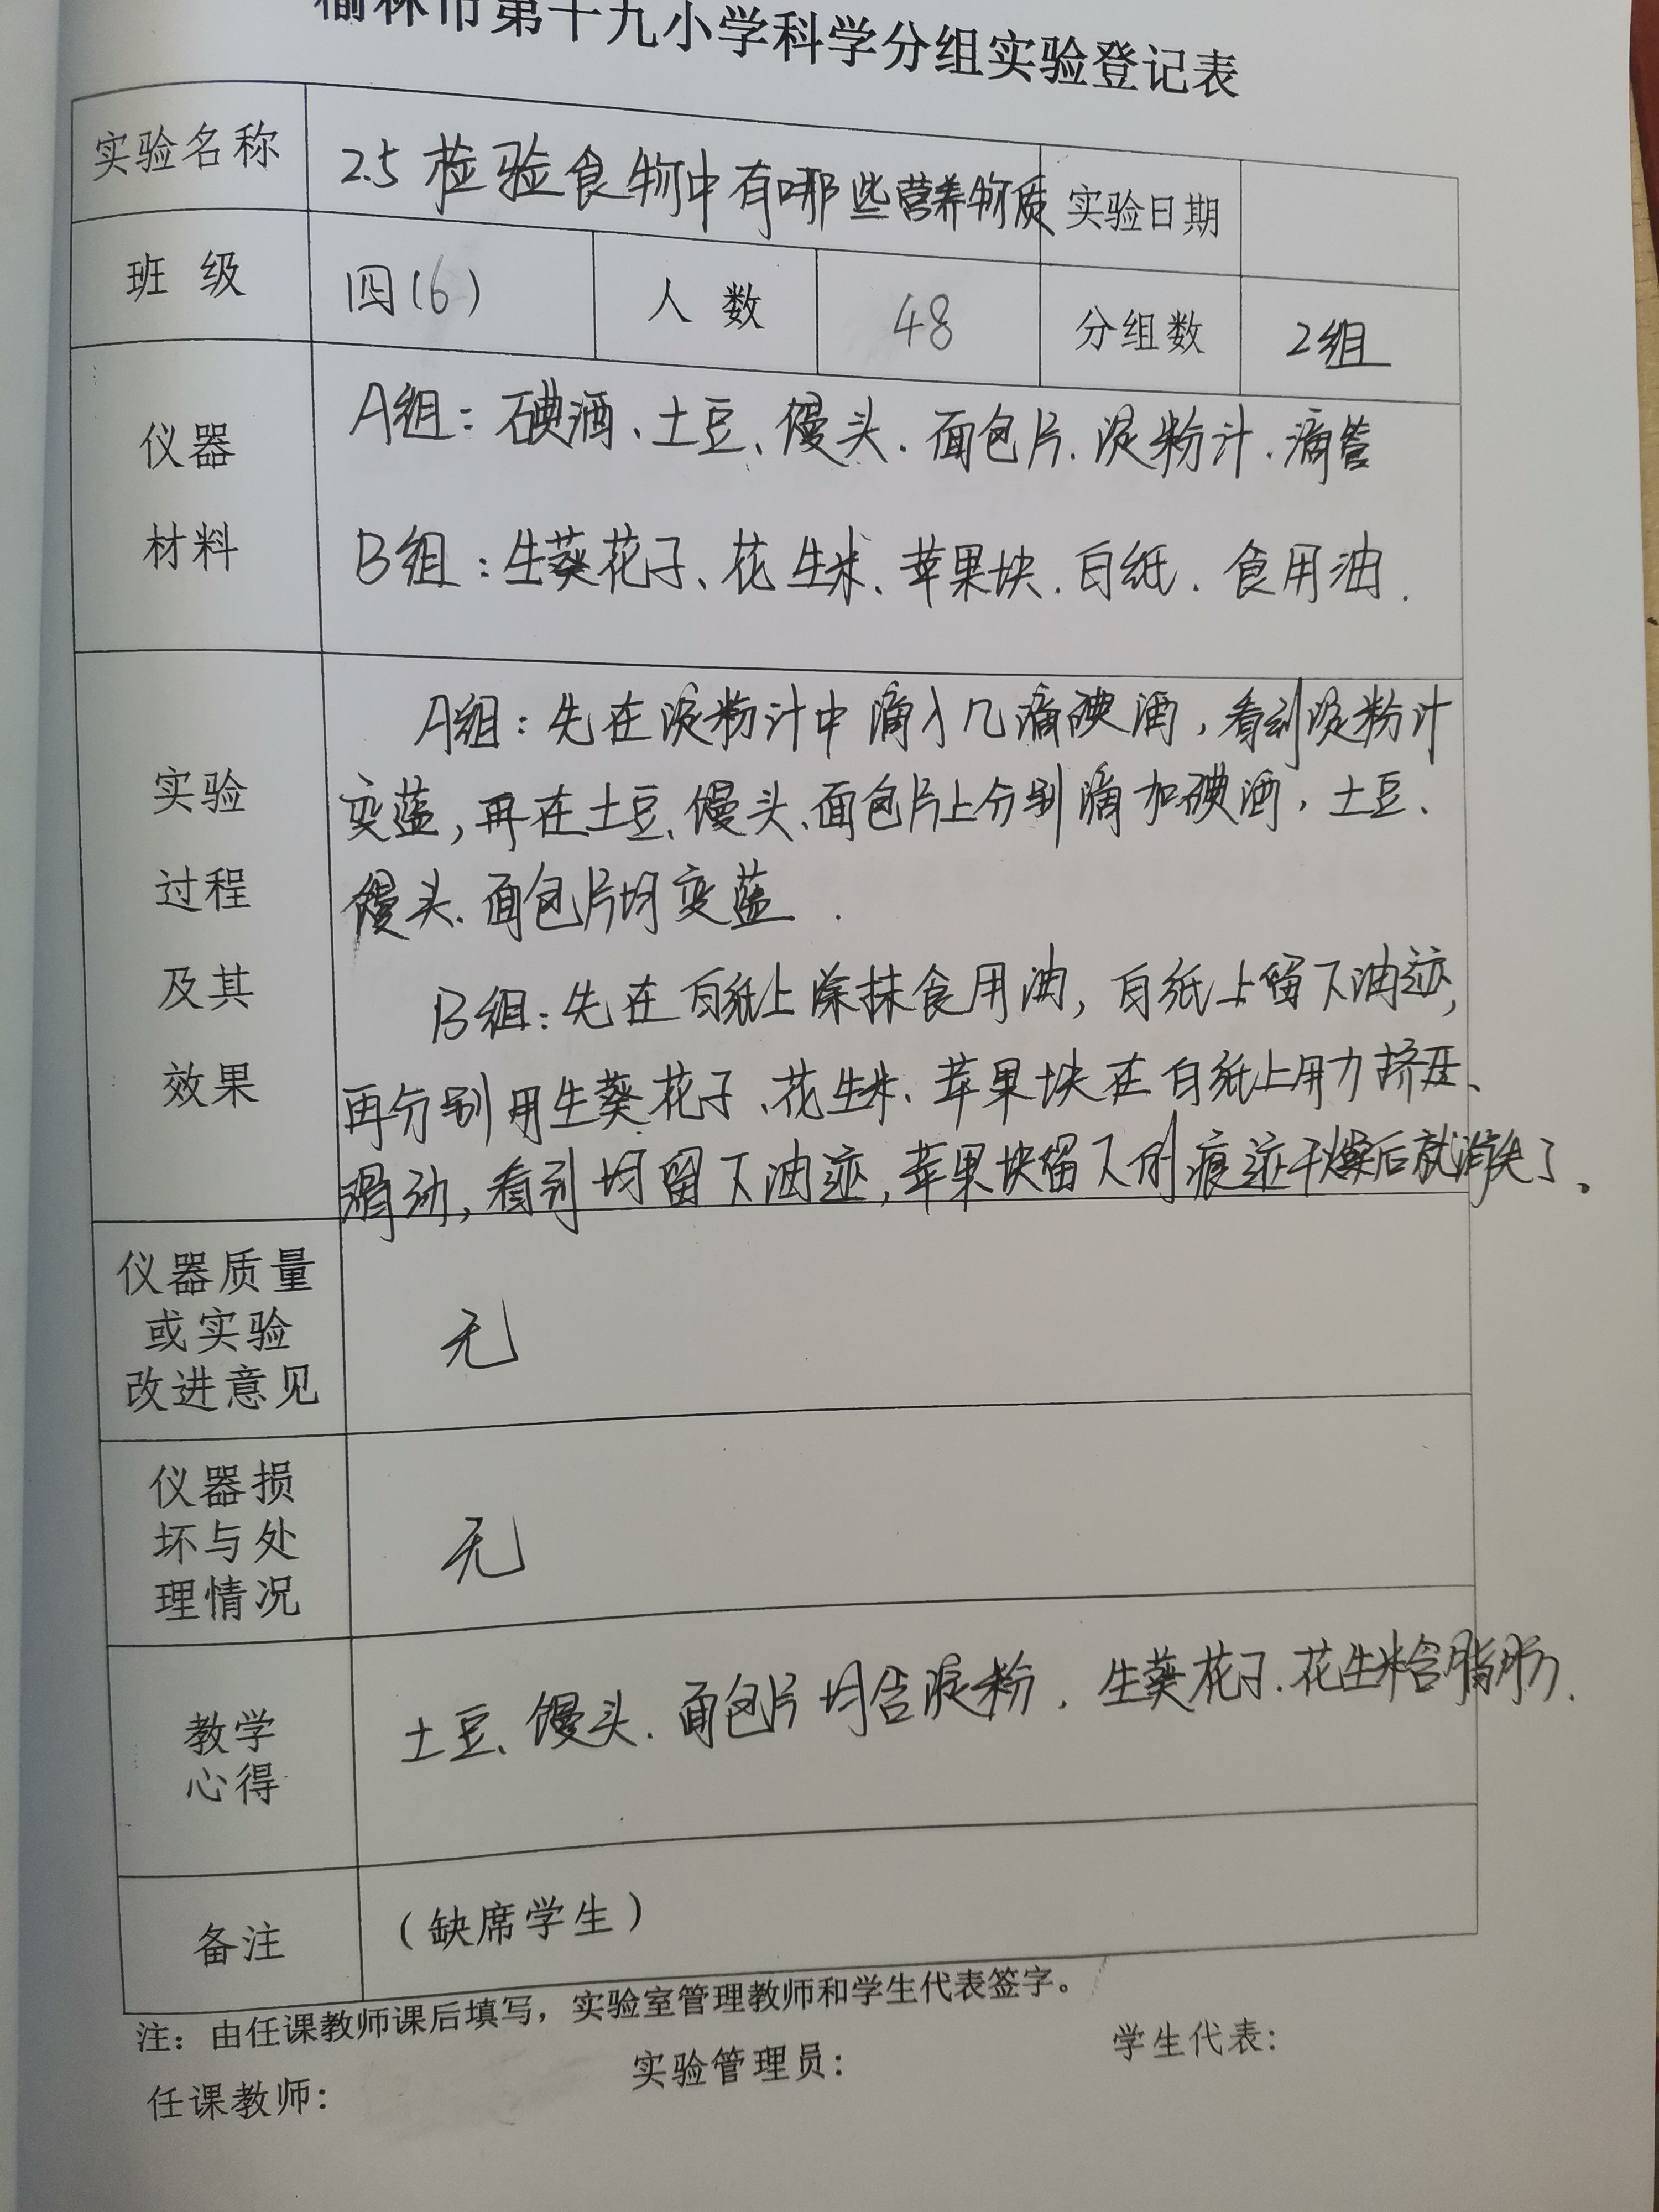 榆林市第十九小学科学分组实验登记表
实验名称 2.5 检验食物中有哪些营养物质 实验日期
班 级 四(6) 人 数 48 分组数 2组
仪器
材料
A组：碘酒、土豆、馒头、面包片、淀粉汁、滴管
B组：生葵花子、花生米、苹果块、白纸、食用油.
实验
过程
及其
效果
A组：先在淀粉汁中滴入几滴碘酒，看到淀粉汁
变蓝，再在土豆、馒头、面包片上分别滴加碘酒，土豆、
馒头、面包片均变蓝.
B组：先在白纸上涂抹食用油，白纸上留下油迹，
再分别用生葵花子、花生米、苹果块在白纸上用力挤压、
滑动，看到均留下油迹，苹果块留下的痕迹干燥后就消失了。
仪器质量
或实验
改进意见
无
仪器损
坏与处
理情况
无
教学
心得
土豆、馒头、面包片均含淀粉. 生葵花子、花生米含脂肪.
备注 (缺席学生)
注：由任课教师课后填写，实验室管理教师和学生代表签字。
任课教师： 实验管理员： 学生代表：